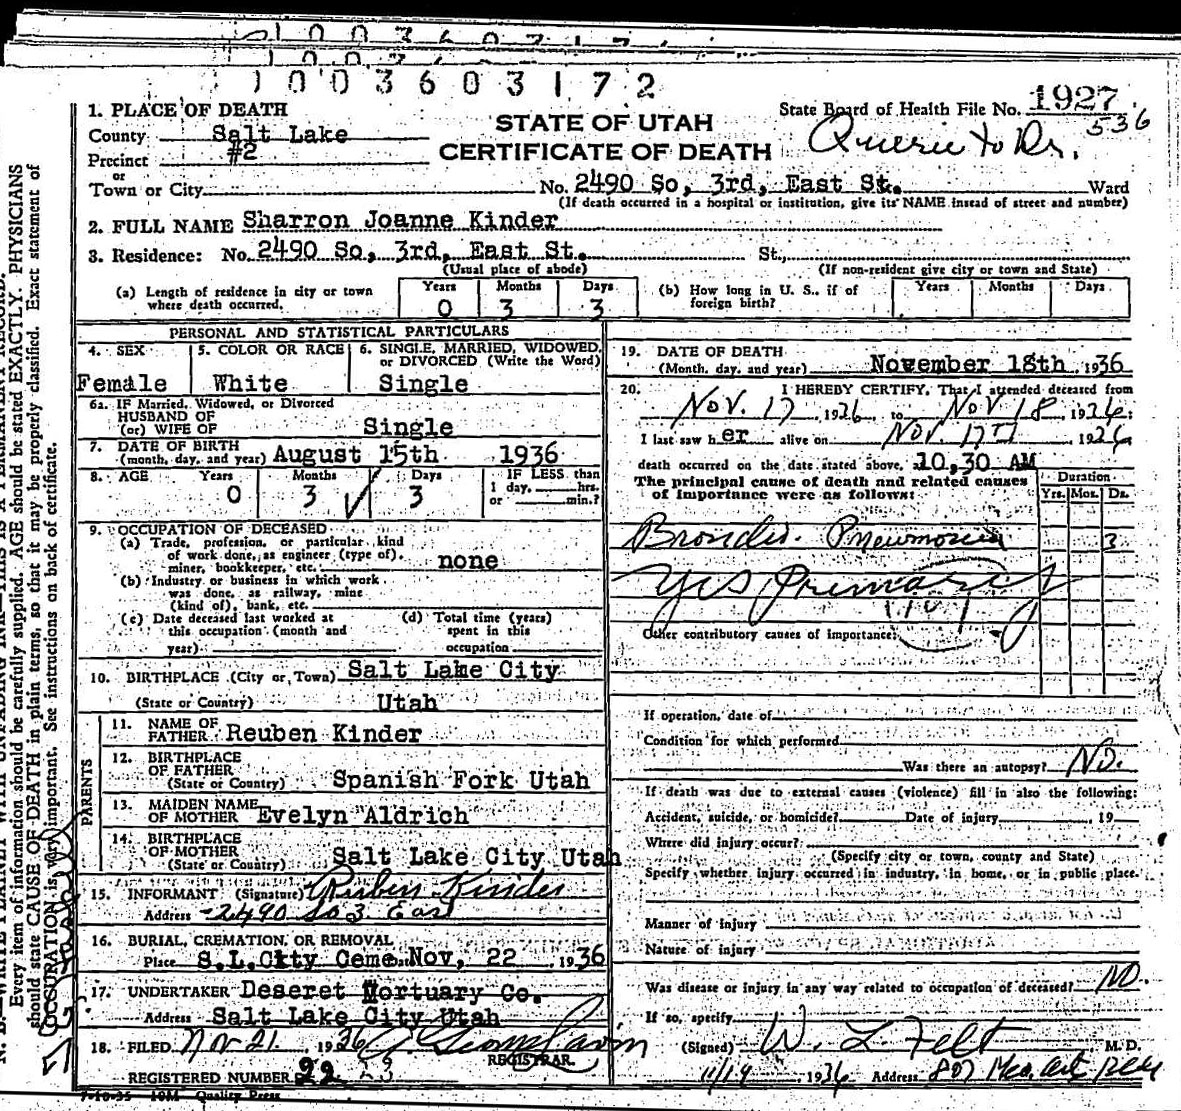 1003603172
1. PLACE OF DEATH
State Board of Health File No. 1927
536
County Salt Lake
STATE OF UTAH
Querie to Dr.
Precinct #2
CERTIFICATE OF DEATH
or
Town or City
No. 2490 So, 3rd, East St. Ward
(If death occurred in a hospital or institution, give its NAME instead of street and number)
2. FULL NAME Sharron Joanne Kinder
3. Residence: No. 2490 So, 3rd, East St. St.,
(Usual place of abode) (If non-resident give city or town and State)
(a) Length of residence in city or town where death occurred. Years 0 Months 3 Days 3
(b) How long in U. S., if of foreign birth? Years Months Days
PERSONAL AND STATISTICAL PARTICULARS
4. SEX Female
5. COLOR OR RACE White
6. SINGLE, MARRIED, WIDOWED, or DIVORCED (Write the Word) Single
6a. IF Married, Widowed, or Divorced
HUSBAND OF
(or) WIFE OF Single
7. DATE OF BIRTH
(month, day, and year) August 15th 1936
8. AGE Years 0 Months 3 Days 3
IF LESS than
1 day, hrs.
or min.?
9. OCCUPATION OF DECEASED
(a) Trade, profession, or particular kind
of work done, as engineer (type of),
miner, bookkeeper, etc. none
(b) Industry or business in which work
was done, as railway, mine
(kind of), bank, etc.
(c) Date deceased last worked at
this occupation (month and
year)
(d) Total time (years)
spent in this
occupation
10. BIRTHPLACE (City or Town) Salt Lake City
(State or Country) Utah
PARENTS
11. NAME OF
FATHER Reuben Kinder
12. BIRTHPLACE
OF FATHER
(State or Country) Spanish Fork Utah
13. MAIDEN NAME
OF MOTHER Evelyn Aldrich
14. BIRTHPLACE
OF MOTHER
(State or Country) Salt Lake City Utah
15. INFORMANT (Signature) Reuben Kinder
Address 2490 So 3 East
16. BURIAL, CREMATION, OR REMOVAL
Place S.L.City Ceme Date Nov, 22 1936
17. UNDERTAKER Deseret Mortuary Co.
Address Salt Lake City Utah
18. FILED Nov 21 1936
REGISTRAR.
REGISTERED NUMBER 22 23
7-10-35 10M Quality Press
19. DATE OF DEATH
(Month, day, and year) November 18th 1936
20. I HEREBY CERTIFY, That I attended deceased from
Nov. 17 1936 to Nov 18 1936;
I last saw her alive on Nov. 17th 1936
death occurred on the date stated above, 10,30 AM
The principal cause of death and related causes
of importance were as follows:
Duration
Yrs. Mos. Ds.
Broncho. Pneumonia 3
Yes Primary
107
Other contributory causes of importance:
If operation, date of
Condition for which performed
Was there an autopsy? No.
If death was due to external causes (violence) fill in also the following:
Accident, suicide, or homicide? Date of injury , 19
Where did injury occur?
(Specify city or town, county and State)
Specify whether injury occurred in industry, in home, or in public place.
Manner of injury
Nature of injury
Was disease or injury in any way related to occupation of deceased? NO.
If so, specify
(Signed) W. L. Felt M. D.
11/19 1936 Address 807 Med. Arts Bldg
Every item of information should be carefully supplied. AGE should be stated EXACTLY. PHYSICIANS
should state CAUSE OF DEATH in plain terms, so that it may be properly classified. Exact statement of
OCCUPATION is very important. See instructions on back of certificate.